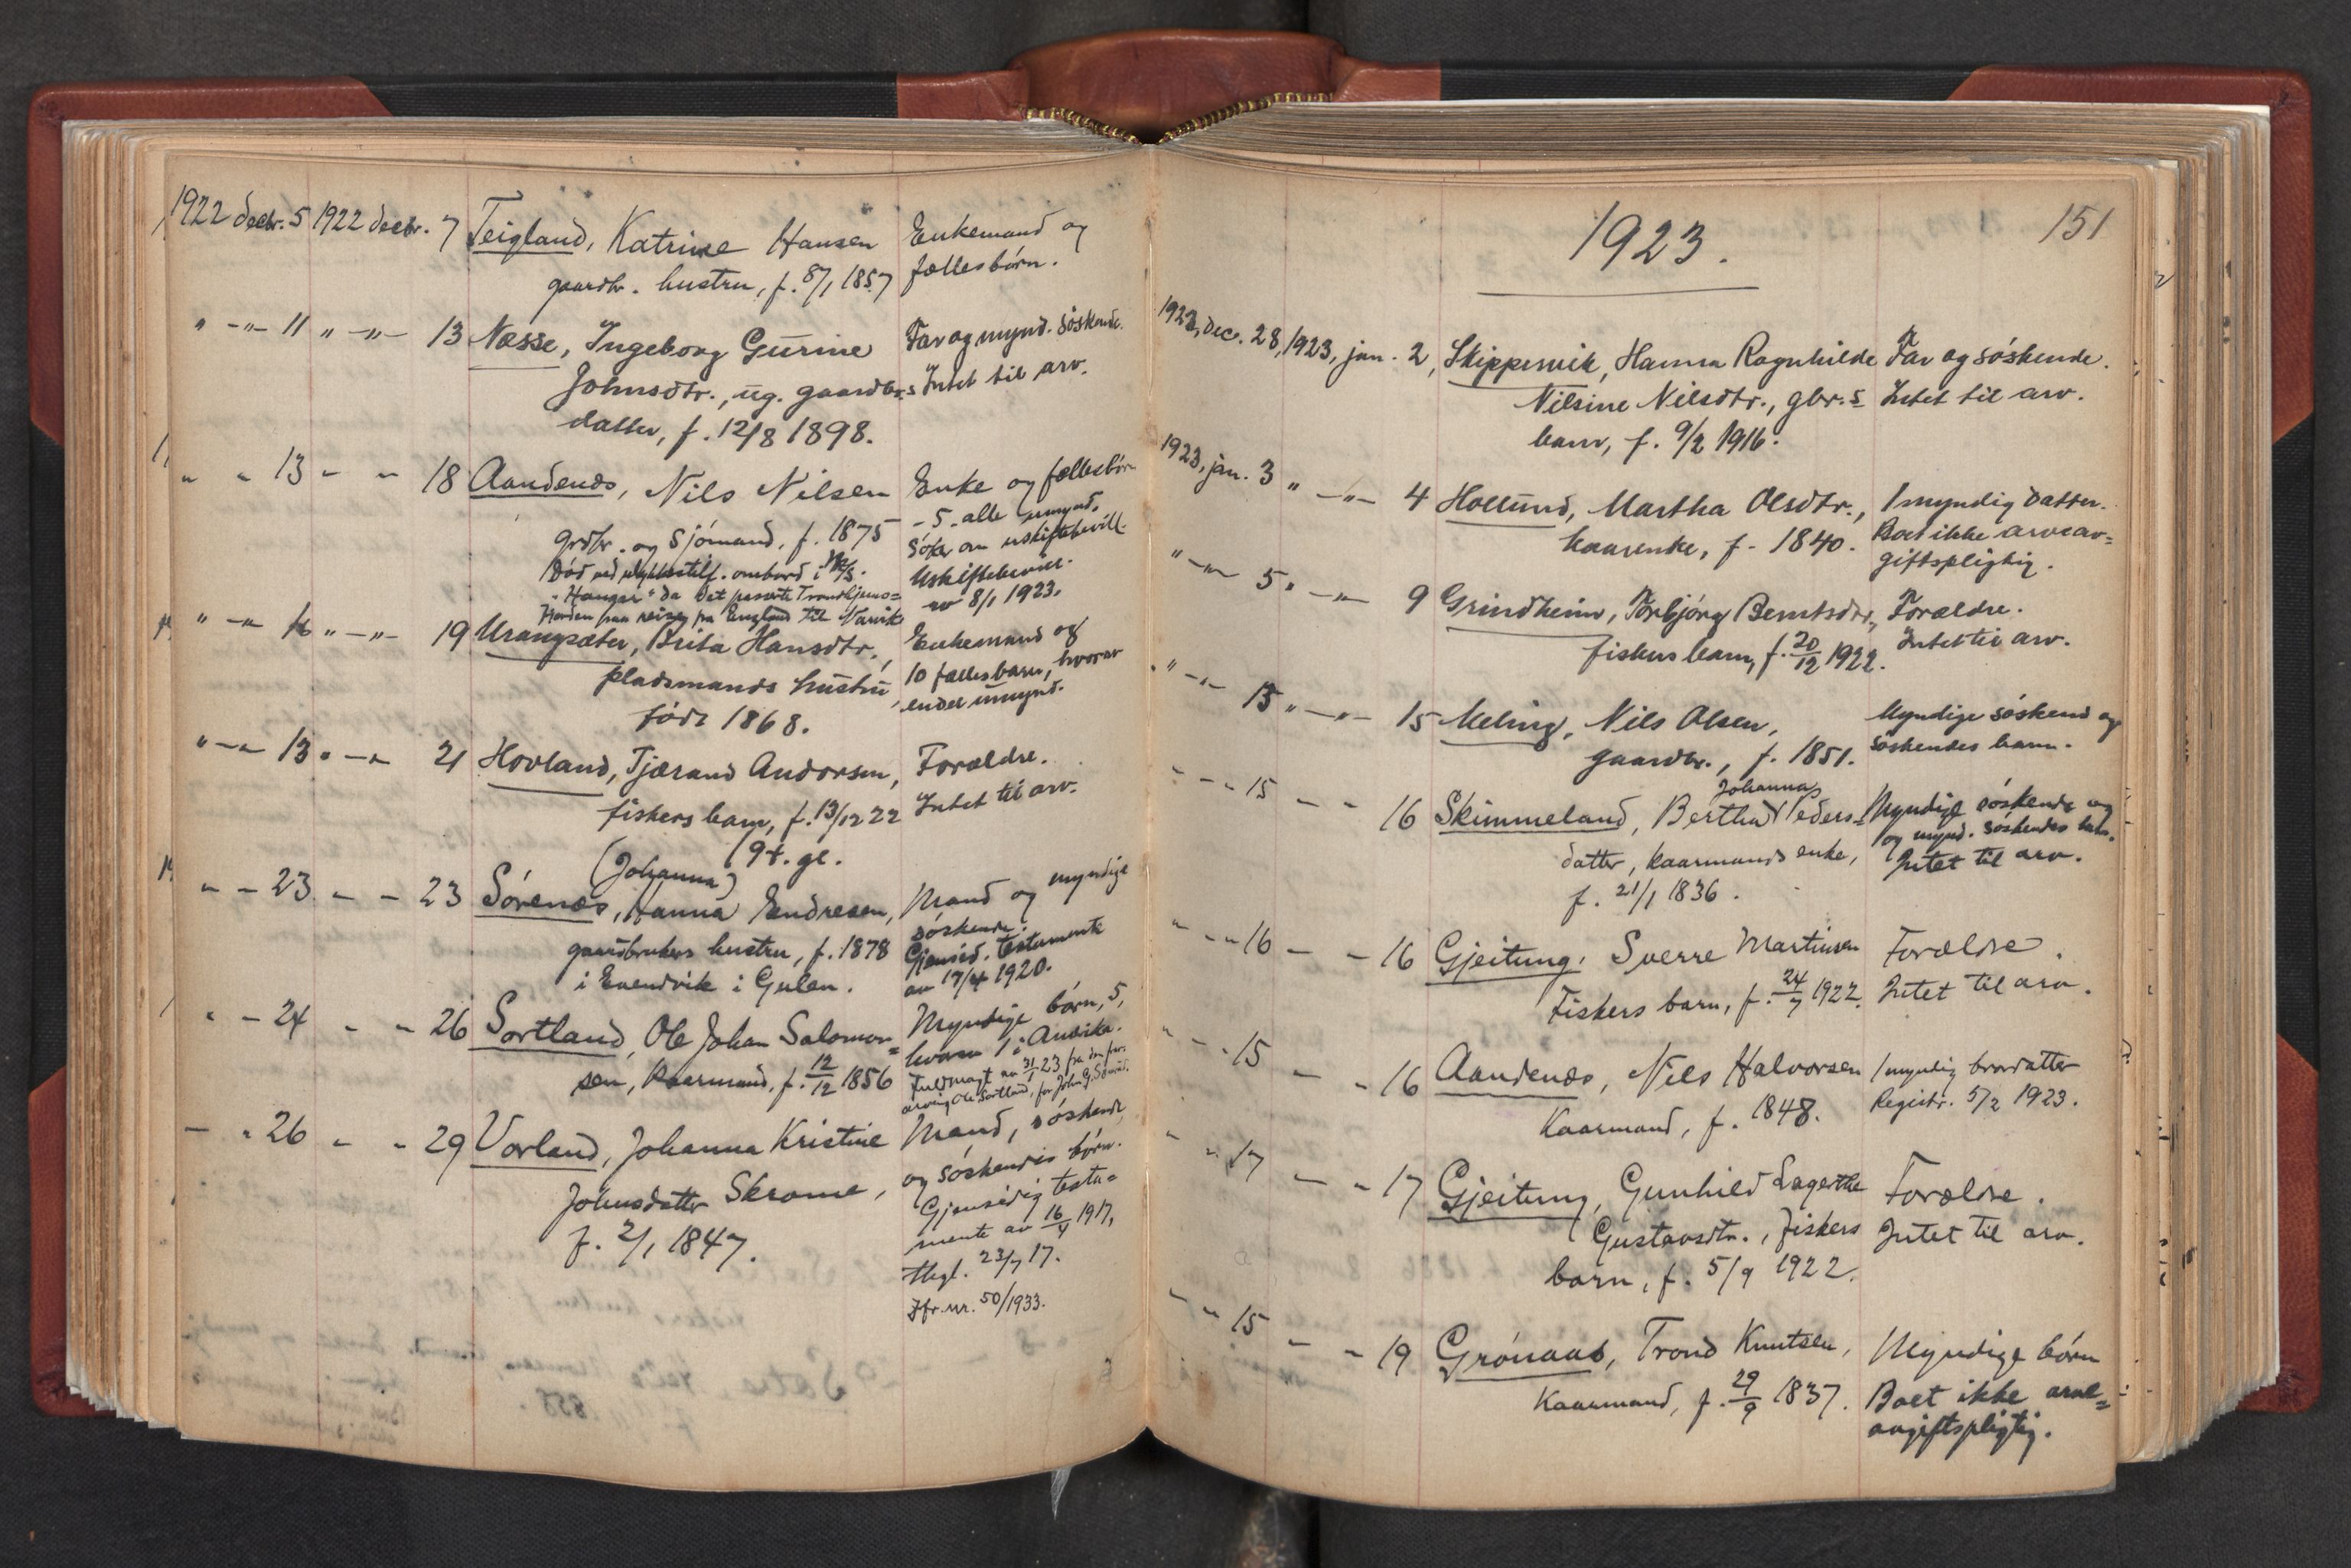 1922 decbr. 5 1922 decbr. 7 Teigland, Katrine Hansen Enkemand og
gaardbr. hustru, f. 8/1 1857 fællesbörn.
" -"- 11 " -"- 13 Næsse, Ingeborg Gurine Far og mynd. söskende.
Johnsdtr., ug. gaardbr.s Intet til arv.
datter, f. 12/8 1898.
" " 13 " " 18 Aandenæs, Nils Nilsen Enke og fællesbörn
- 5 - alle umynd.
grdbr. og Sjömand, f. 1875 Söker om uskiftebevill.
Död ved ulykkestilf. ombord i M/S. Uskiftebevill.
"Hanger" da det passerte Trondhjems= av 8/1 1923.
fjorden paa reise fra England til Narvik
" -"- 16 " -"- 19 Urangsæter, Brita Hansdtr., Enkemand og
pladsmands hustru, 10 fællesbarn, hvorav
endel umynd.
född 1868.
" -"- 13 " -"- 21 Hovland, Tjærand Andorsen, Forældre.
fiskers barn, f. 13/12 22 Intet til arv.
(Johanna) 9 t. gl.
" - 23 " - 23 Sörenæs, Hanna Endresen, Mand og myndige
söskende.
gaardbrukers hustru, f. 1878 Gjensid. testamente
i Evendvik i Gulen. av 17/4 1920.
" - 24 " - 26 Sortland, Ole Johan Salomon= Myndige börn, 5,
hvorav 1 i Amerika.
sen, Kaarmand, f. 12/12 1856 Fuldmagt av 31/1 23 fra den
arving Ole Sortland, for John G.
- " 26 " - 29 Vorland, Johanna Kristine Mand, söskende
og söskendes börn.
Johnsdatter Skrome, Gjensidig testa=
f. 2/1 1847. mente av 16/4 1917,
thgl. 23/7 17.
Jfr. nr. 50/1933.
151
1923.
1922, dec. 28, 1923, jan. 2, Skippervik, Hanna Ragnhilde Far og söskende.
Nilsine Nilsdtr., gbr.s Intet til arv.
barn, f. 9/2 1916.
1923, jan. 3 " -"- 4 Hollund, Martha Olsdtr., 1 myndig datter.
kaarenke, f. 1840. Boet ikke arveav=
giftspligtig.
" -"- 5 " -"- 9 Grindheim, Torbjörg Berntsdtr., Forældre.
fiskers barn, f. 20/12 1922. Intet til arv.
" -"- 13 " -"- 15 Meling, Nils Olsen, Myndige söskend og
gaardbr., f. 1851. söskendes barn.
Johanna
" - " 15 - - 16 Skimmeland, Bertha Peders= Myndige söskende og
og mynd. söskendes barn.
datter, kaarmands enke, Intet til arv.
f. 21/1 1836.
" - " 16 - - 16 Gjeitung, Sverre Martinsen Forældre.
Fiskers barn, f. 24/7 1922. Intet til arv.
" - " 15 - - 16 Aandenæs, Nils Halvorsen 1 myndig brordatter
Kaarmand, f. 1848. Registr. 5/2 1923.
" - " 17 - - 17 Gjeitung, Gunhild Lagertha Forældre.
Gustavsdtr., fiskers Intet til arv.
barn, f. 5/9 1922.
" - " 15 - - 19 Grönaas, Trond Knutsen, Myndige börn
Kaarmand, f. 29/9 1837. Boet ikke arve=
avgiftspligtig.